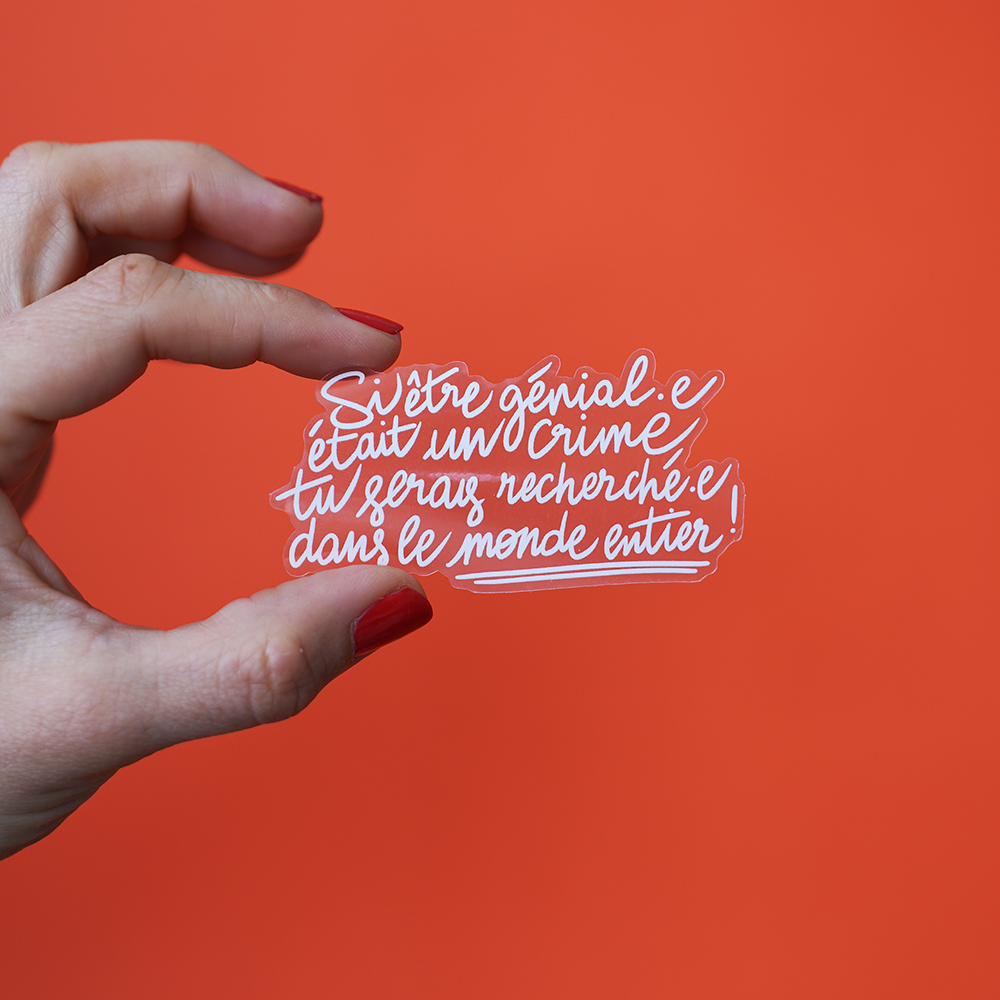 Si être génial.e
était un crime
tu serais recherché.e
dans le monde entier !